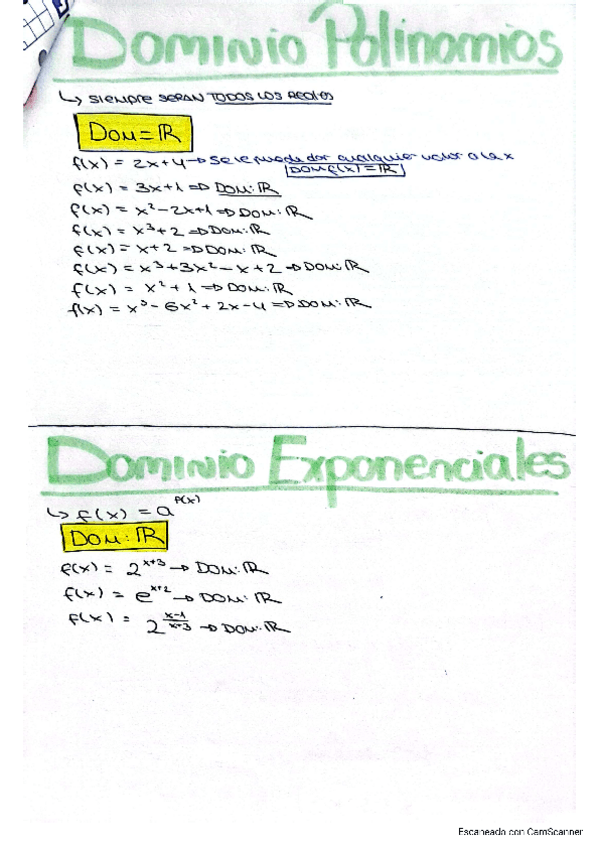 Dominio Polinomios
↳ SIEMPRE SERAN TODOS LOS REALES
DOM = ℝ
f(x) = 2x+4 → se le puede dar cualquier valor a la x
DOM f(x) = ℝ
f(x) = 3x+1 ⇒ DOM: ℝ
f(x) = x² - 2x+1 ⇒ DOM: ℝ
f(x) = x³ + 2 ⇒ DOM: ℝ
f(x) = x+2 ⇒ DOM: ℝ
f(x) = x³+3x² - x + 2 ⇒ DOM: ℝ
f(x) = x² + 1 ⇒ DOM: ℝ
f(x) = x³ - 6x² + 2x - 4 ⇒ DOM: ℝ
Dominio Exponenciales
↳ f(x) = a^P(x)
DOM: ℝ
f(x) = 2^x+3 → DOM: ℝ
f(x) = e^x+2 → DOM: ℝ
f(x) = 2^(x-1)/(x+3) → DOM: ℝ
Escaneado con CamScanner